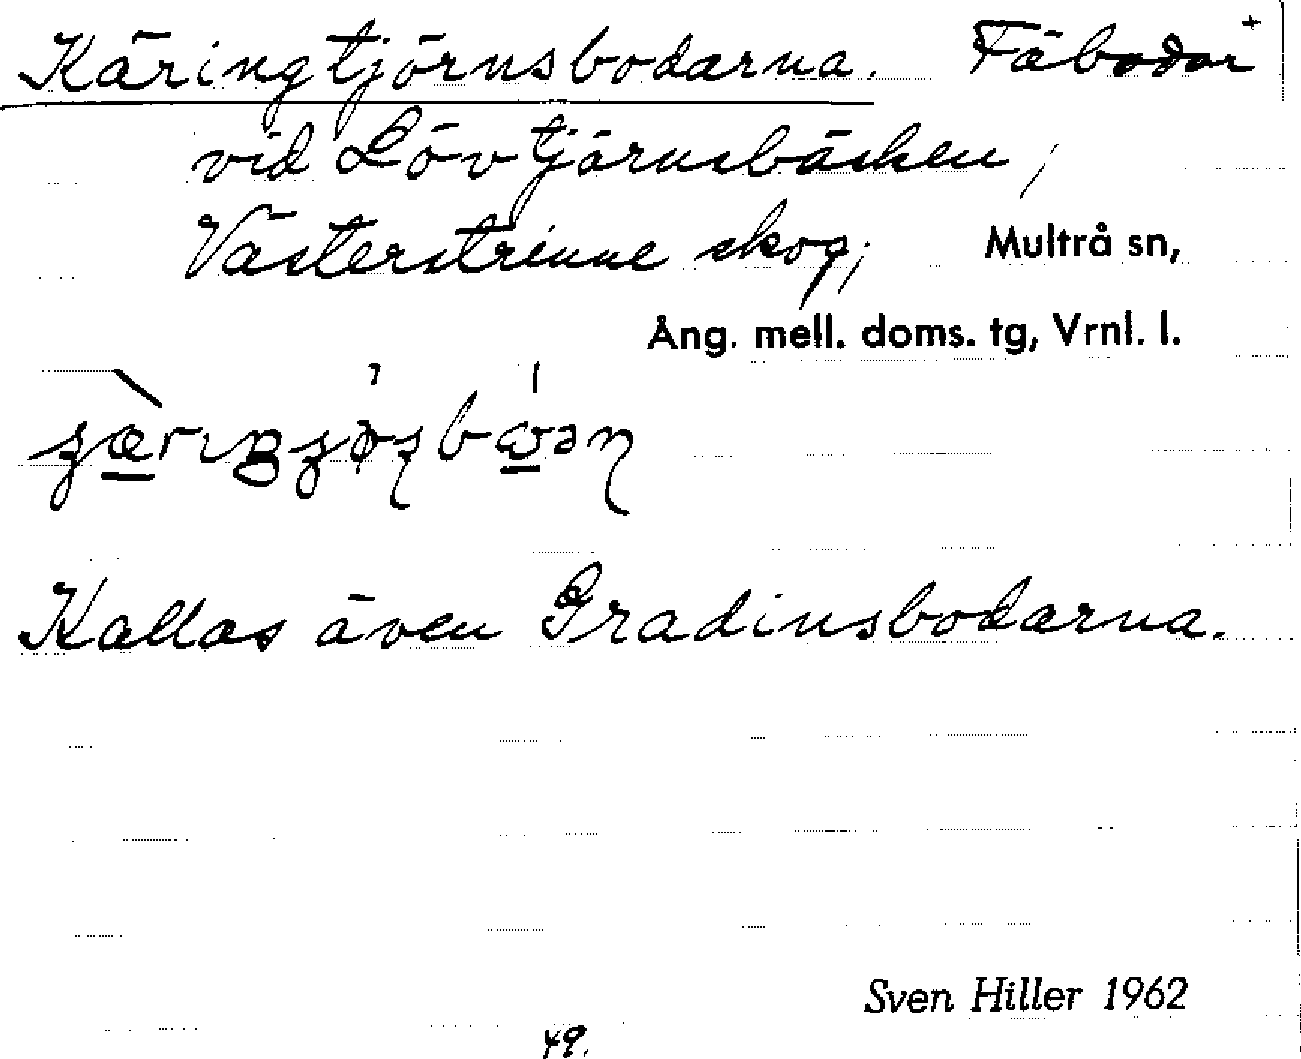 Käringtjörnsbodarna. Fäbodar+
vid Lövtjärnsbäcken,
Västerstrinne skog, Multrå sn,
Ång. mell. doms. tg, Vrnl. l.
Kallas även Gradinsbodarna.
Sven Hiller 1962
49.